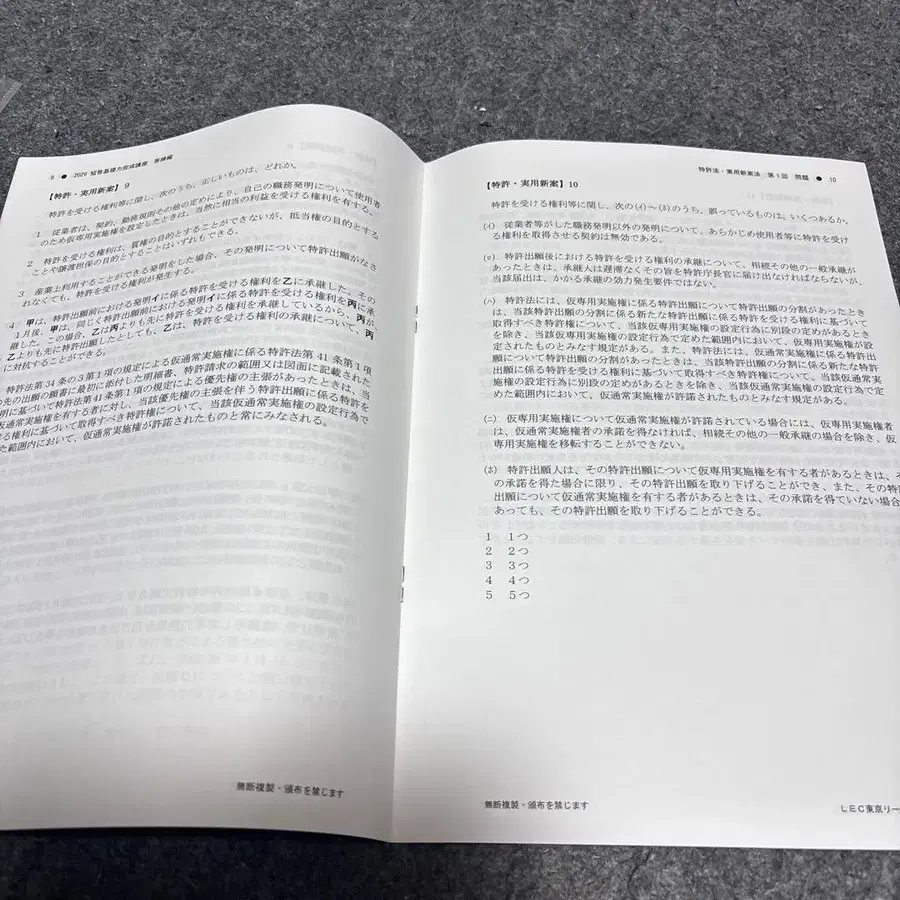 9 ● 2026 短答基礎力完成講座 答練編
【特許・実用新案】9
特許を受ける権利等に関し、次のうち、正しいものは、どれか。
1 従業者は、契約、勤務規則その他の定めにより、自己の職務発明について使用者
のため仮専用実施権を設定したときは、当然に相当の利益を受ける権利を有する。
2 特許を受ける権利は、質権の目的とすることができないが、抵当権の目的とする
ことや譲渡担保の目的とすることはいずれもできる。
3 産業上利用することができる発明をした場合、その発明について特許出願がなさ
れなくても、特許を受ける権利が発生する。
4 甲は、特許出願前における発明イに係る特許を受ける権利を乙に承継した。その
1月後、甲は、同じく特許出願前における発明イに係る特許を受ける権利を丙に承
継した。この場合、乙は丙よりも先に特許を受ける権利を承継しているから、丙が
乙よりも先に特許出願したとしても、乙は、特許を受ける権利の承継について、丙
に対抗することができる。
特許法第34条の3第1項の規定による仮通常実施権に係る特許法第41条第1項
の先の出願の願書に最初に添付した明細書、特許請求の範囲又は図面に記載された
明に基づいて特許法第41条第1項の規定による優先権の主張があったときは、当
仮通常実施権を有する者に対し、当該優先権の主張を伴う特許出願に係る特許を
る権利に基づいて取得すべき特許権について、当該仮通常実施権の設定行為で
た範囲内において、仮通常実施権が許諾されたものと常にみなされる。
無断複製・頒布を禁じます
特許法・実用新案法 第1回 問題 ● 10
【特許・実用新案】10
特許を受ける権利等に関し、次の(イ)～(ホ)のうち、誤っているものは、いくつあるか。
(イ) 従業者等がした職務発明以外の発明について、あらかじめ使用者等に特許を受け
る権利を取得させる契約は無効である。
(ロ) 特許出願後における特許を受ける権利の承継について、相続その他の一般承継が
あったときは、承継人は遅滞なくその旨を特許庁長官に届け出なければならないが、
当該届出は、かかる承継の効力発生要件ではない。
(ハ) 特許法には、仮専用実施権に係る特許出願について特許出願の分割があったとき
は、当該特許出願の分割に係る新たな特許出願に係る特許を受ける権利に基づいて
取得すべき特許権について、当該仮専用実施権の設定行為に別段の定めがあるとき
を除き、当該仮専用実施権の設定行為で定めた範囲内において、仮専用実施権が設
定されたものとみなす規定がある。また、特許法には、仮通常実施権に係る特許出
願について特許出願の分割があったときは、当該特許出願の分割に係る新たな特許
出願に係る特許を受ける権利に基づいて取得すべき特許権について、当該仮通常実
施権の設定行為に別段の定めがあるときを除き、当該仮通常実施権の設定行為で定
めた範囲内において、仮通常実施権が許諾されたものとみなす規定がある。
(ニ) 仮専用実施権について仮通常実施権が許諾されている場合には、仮専用実施権者
は、仮通常実施権者の承諾を得なければ、相続その他の一般承継の場合を除き、仮
専用実施権を移転することができない。
(ホ) 特許出願人は、その特許出願について仮専用実施権を有する者があるときは、そ
の承諾を得た場合に限り、その特許出願を取り下げることができ、また、その特許
出願について仮通常実施権を有する者があるときは、その承諾を得ていない場合
あっても、その特許出願を取り下げることができる。
1 1つ
2 2つ
3 3つ
4 4つ
5 5つ
無断複製・頒布を禁じます
LEC東京リー